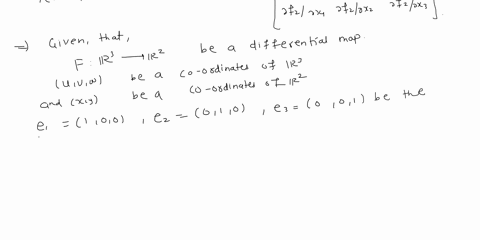 ∂f₂/∂x₁ ∂f₂/∂x₂ ∂f₂/∂x₃
⇒ Given, that,
F : ℝ³ → ℝ² be a differential map.
(u,v,w) be a co-ordinates of ℝ³
and (x,y) be a co-ordinates of ℝ²
e₁ = (1,0,0) , e₂ = (0,1,0) , e₃ = (0,0,1) be the